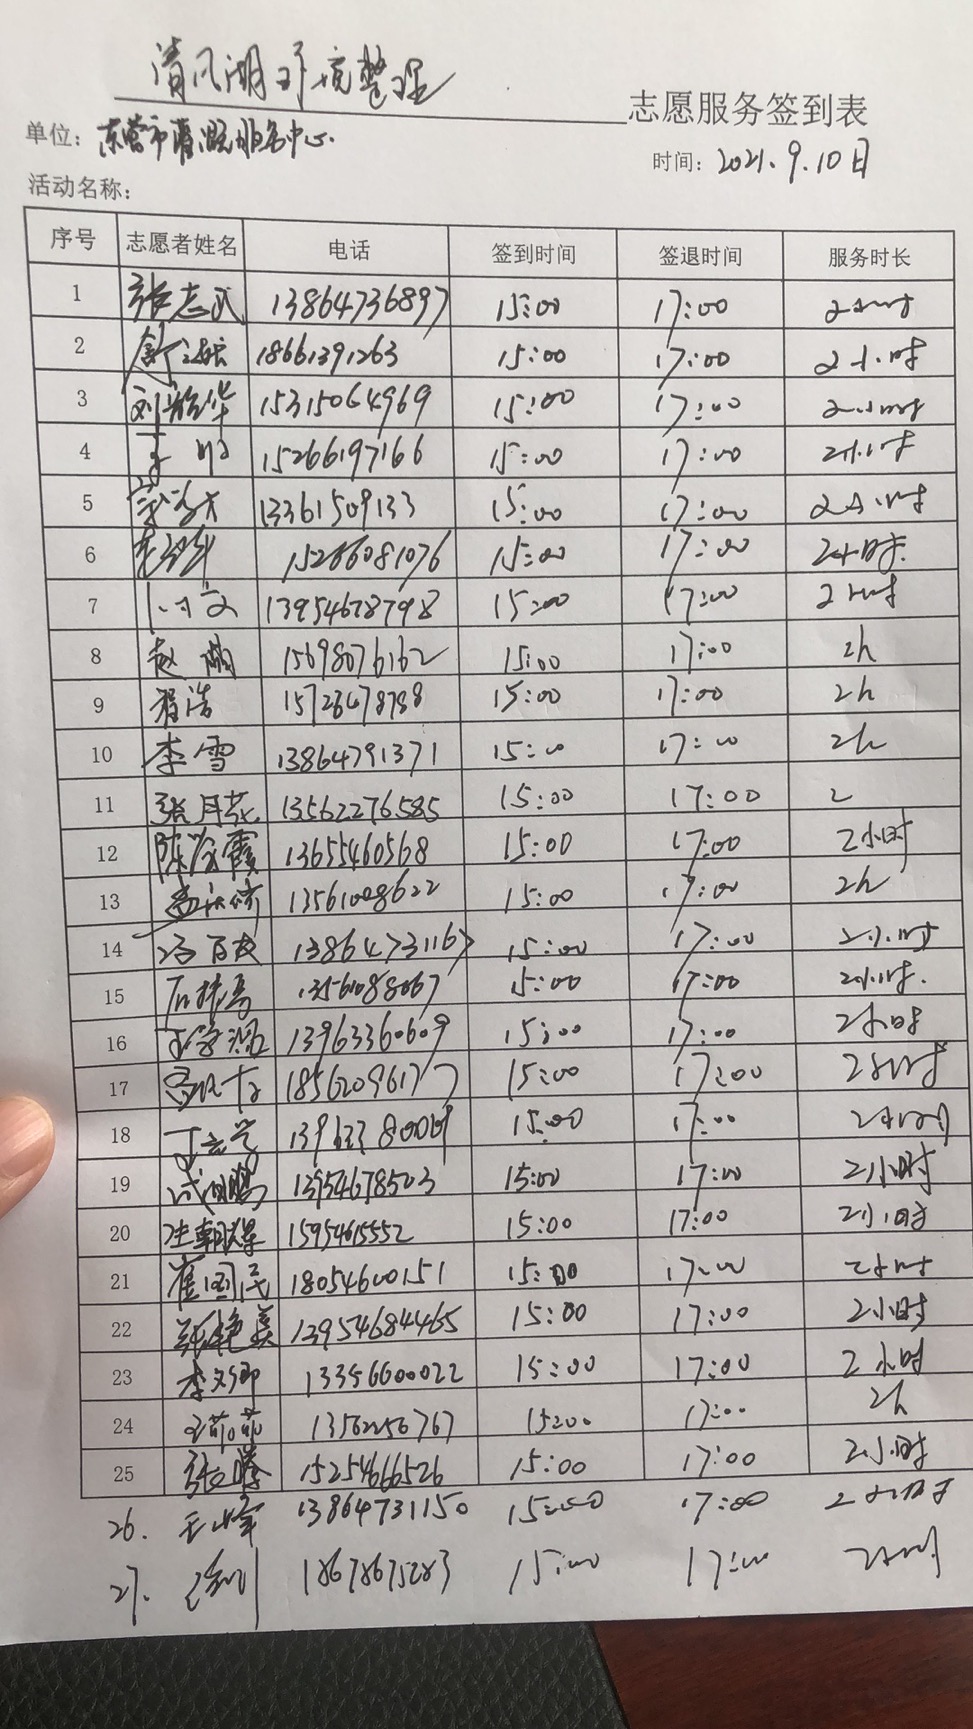 清风湖环境整理 志愿服务签到表
单位：东营市 服务中心
时间：2021.9.10日
活动名称：
序号 志愿者姓名 电话 签到时间 签退时间 服务时长
1 张志武 13864736897 15:00 17:00 2小时
2 18661391263 15:00 17:00 2小时
3 刘 华 15315064969 15:00 17:00 2小时
4 15266197166 15:00 17:00 2小时
5 13361509133 15:00 17:00 2小时
6 15266081076 15:00 17:00 2小时
7 13954678798 15:00 17:00 2小时
8 赵 15698076162 15:00 17:00 2h
9 程浩 15:00 17:00 2h
10 李雪 13864791371 15:00 17:00 2h
11 张月花 13562276585 15:00 17:00 2
12 陈 霞 13655460568 15:00 17:00 2小时
13 13561008622 15:00 17:00 2h
14 冯百友 13864731167 15:00 17:00 2小时
15 13561088067 15:00 17:00 2小时.
16 13963360609 15:00 17:00 2小时
17 18562096177 15:00 17:00 2小时
18 15:00 17:00 2小时
19 13954678503 15:00 17:00 2小时
20 15954615552 15:00 17:00 2小时
21 崔国民 18054600151 15:00 17:00 2小时
22 张艳美 13954684465 15:00 17:00 2小时
23 李文卿 13356600022 15:00 17:00 2小时
24 王菲菲 13562256767 15:00 17:00 2h
25 张 15254666526 15:00 17:00 2小时
26. 王峰 13864731150 15:00 17:00 2小时
27. 18678675283 15:00 17:00 2小时